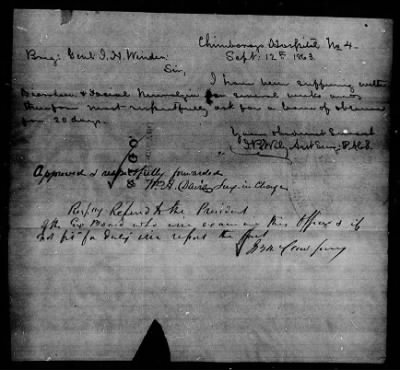 Chimborazo Hospital No 4
Sept: 12th 1863
Brig: Genl J. H. Winder
Sir,
I have been suffering with
Diarrhoea & Facial Neuralgia for several weeks and
therefore most respectfully ask for a leave of absence
for 20 days.
Your obedient Servant
Asst Surg: P.A.C.S.
Approved & respectfully forwarded
Wm A. Davis Surg in Charge
Resply Referred to the President
of the Exg Board who will examine this Officer & if
not fit for duty will report the fact